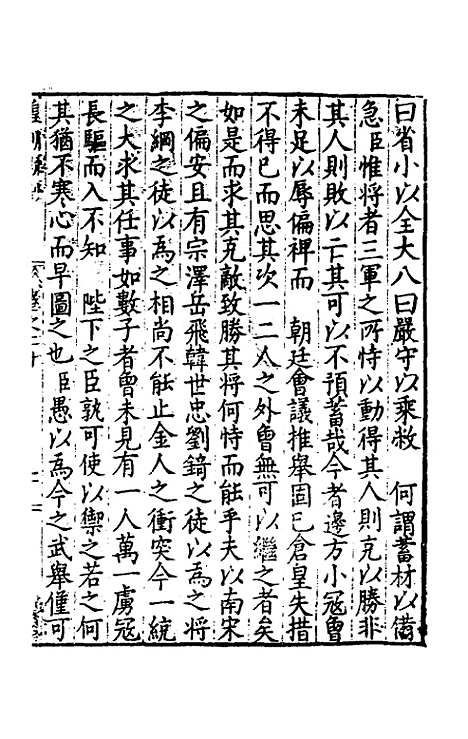 曰省小以全大八曰嚴守以乘敝　何謂蓄材以備
急臣惟將者三軍之所恃以動得其人則克以勝非
其人則敗以亡其可以不預蓄哉今者邊方小寇曾
未足以辱偏裨而　朝廷會議推舉固已倉皇失措
不得已而思其次一二人之外曾無可以繼之者矣
如是而求其克敵致勝其將何恃而能乎夫以南宋
之偏安且有宗澤岳飛韓世忠劉錡之徒以為之將
李綱之徒以為之相尚不能止金人之衝突今一統
之大求其任事如數子者曾未見有一人萬一虜寇
長驅而入不知　陛下之臣孰可使以禦之若之何
其猶不寒心而早圖之也臣愚以為今之武舉僅可